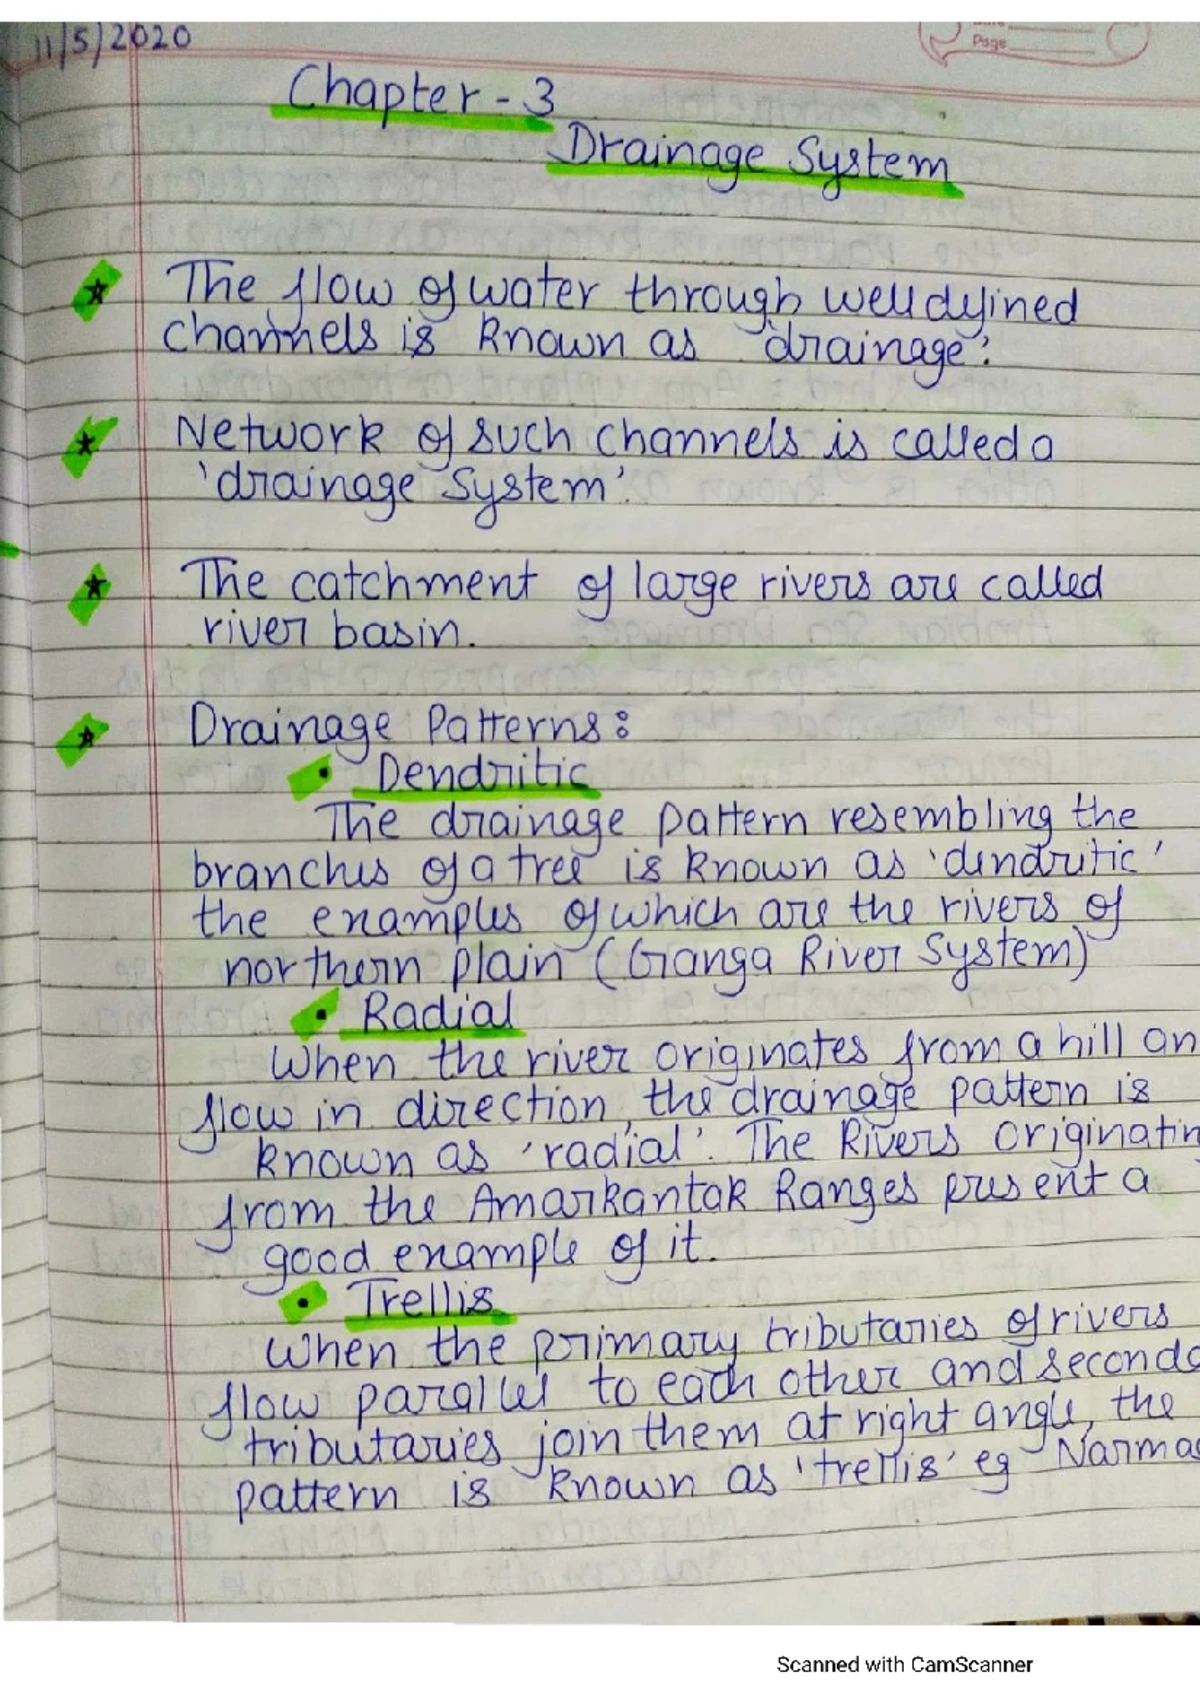 11/5/2020
Page
Chapter - 3
Drainage System
The flow of water through well defined
channels is known as 'drainage'.
Network of such channels is called a
'drainage System'.
The catchment of large rivers are called
river basin.
Drainage Patterns:
• Dendritic
The drainage pattern resembling the
branches of a tree is known as 'dendritic'
the examples of which are the rivers of
northern plain (Ganga River System)
• Radial
When the river originates from a hill an
flow in direction, the drainage pattern is
known as 'radial'. The Rivers originatin
from the Amarkantak Ranges present a
good example of it.
• Trellis
When the primary tributaries of rivers
flow parallel to each other and seconda
tributaries join them at right angle, the
pattern is known as 'trellis' eg Narmad
Scanned with CamScanner